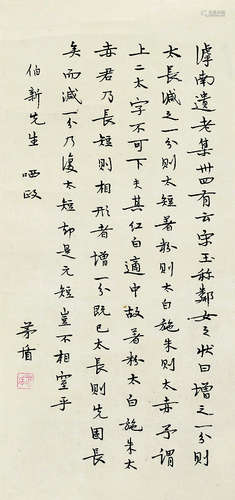 滹南遗老集卅四有云宋玉称邻女之状曰增之一分则
太长减之一分则太短著粉则太白施朱则太赤予谓
上二太字不可下夫其红白适中故著粉太白施朱太
赤君乃长短则相形者增一分既已太长则先固长
矣而减一分乃復太短却是元短岂不相窒乎
伯新先生 哂政
茅盾